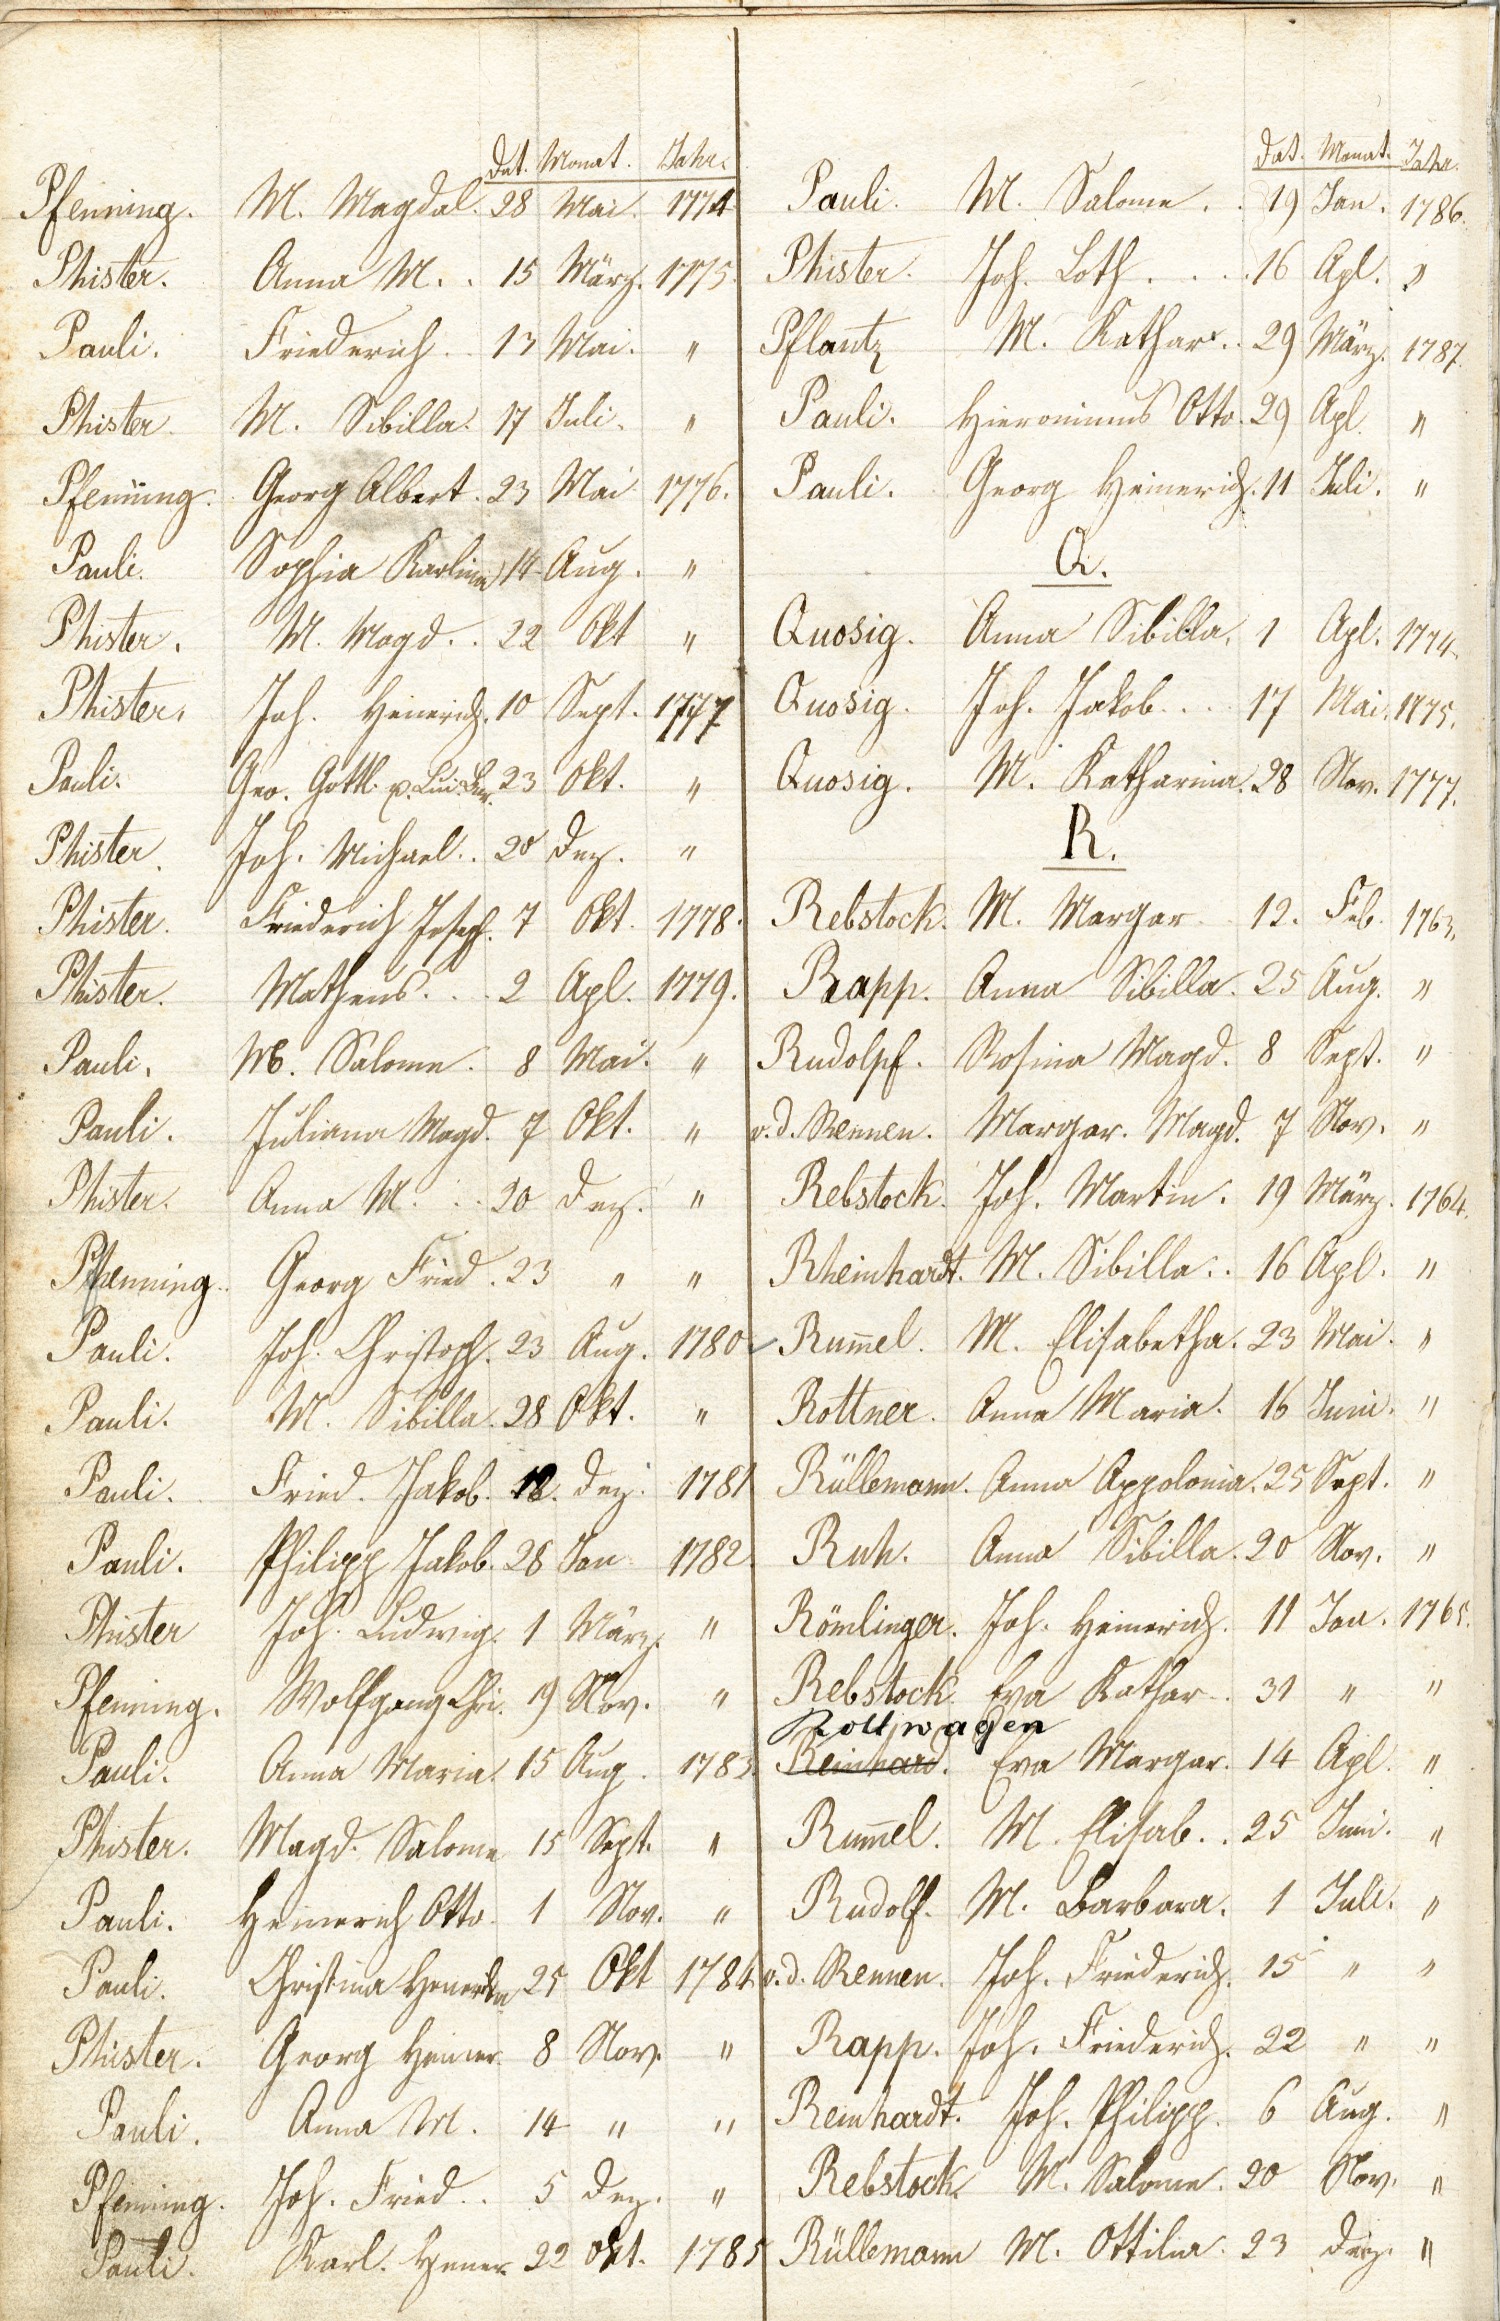 Dat. Monat. Jahr.
Pfenning. M. Magdal. 28 Mai. 1774
Phister. Anna M. . 15 März. 1775.
Pauli. Friederich. . 13 Mai. "
Phister M. Sibilla. 17 Juli. "
Pfenning. Georg Albert. 23 Mai 1776.
Pauli. Sophia Karlina 14 Aug. "
Phister. M. Magd. . 22 Okt "
Phister. Joh. Heinerich. 10 Sept. 1777
Pauli. Geo. Gottl. 23 Okt. "
Phister. Joh. Michael. . 20 Dez. "
Phister. Friederich Joseph. 7 Okt. 1778.
Phister. Matheus. . . 2 Apl. 1779.
Pauli. M. Salome. 8 Mai. "
Pauli. Juliana Magd. 7 Okt. "
Phister. Anna M. . . 20 Dez. "
Pfenning. Georg Fried. 23 " "
Pauli. Joh. Christoph. 23 Aug. 1780
Pauli. M. Sibilla. 28 Okt. "
Pauli. Fried. Jakob. 12. Dez. 1781
Pauli. Philipp Jakob. 28 Jan 1782.
Phister Joh. Ludwig. 1 März. "
Pfenning. Wolfgang Chri. 19 Nov. "
Pauli. Anna Maria. 15 Aug. 1783.
Phister. Magd. Salome 15 Sept. "
Pauli. Heinerich Otto. 1 Nov. "
Pauli. Christina 25 Okt 1784
Phister. Georg Heiner. 8 Nov. "
Pauli. Anna M. 14 " "
Pfenning. Joh. Fried. . 5 Dez. "
Pauli. Karl. Hener 22 Okt. 1785
Dat. Monat. Jahr.
Pauli. M. Salome. . 19 Jan. 1786.
Phister. Joh. Loth. . . . 16 Apl. "
Pflantz M. Kathar. . 29 März. 1787.
Pauli. Hieronimus Otto. 29 Apl. "
Pauli. Georg Heinerich. 11 Juli. "
Q.
Quosig. Anna Sibilla. 1 Apl. 1774.
Quosig. Joh. Jakob. . . 17 Mai. 1775.
Quosig. M. Katharina. 28 Nov. 1777.
R.
Rebstock. M. Margar 12. Feb. 1763.
Rapp. Anna Sibilla. 25 Aug. "
Rudolpf. Rosina Magd. 8 Sept. "
v. d. Rennen. Margar. Magd. 7 Nov. "
Rebstock. Joh. Martin. 19 März. 1764.
Rheinhardt. M. Sibilla. . 16 Apl. "
Rum̄el. M. Elisabetha. 23 Mai. "
Rottner. Anna Maria. 16 Juni. "
Rüllemann. Anna Appolonia. 25 Sept. "
Ruh. Anna Sibilla. 20 Nov. "
Römlinger. Joh. Heinerich. 11 Jan. 1765.
Rebstock. Eva Kathar. . 31 " "
Rollwagen
Reinhard. Eva Margar. 14 Apl. "
Rum̄el. M. Elisab. . 25 Juni. "
Rudolf. M. Barbara. 1 Juli. "
v. d. Rennen. Joh. Friederich. 15 " "
Rapp. Joh. Friederich. 22 " "
Reinhardt. Joh. Philipp. 6 Aug. "
Rebstock. M. Salome. 20 Nov. "
Rüllemann M. Ottilia. 23 Dez. "